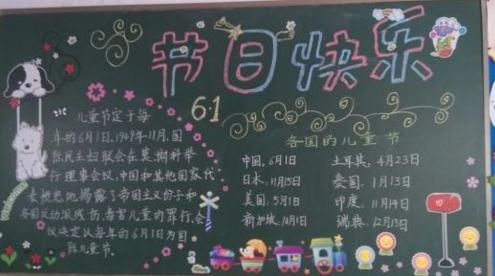 节日快乐
6.1
儿童节定于每
年的6月1日,1949年11月,国
际民主妇联会在莫斯科举
行理事会议,中国和其他国家代
表愤怒地揭露了帝国主义份子和
各国反动派残伤、毒害儿童的罪行,会
议决定以每年的6月1日为国
际儿童节.
各国的儿童节
中国,6月1日 土耳其,4月23日
日本,11月15日 泰国,1月13日
美国,5月1日 印度,11月14日
新加坡,10月1日 瑞典,12月13日